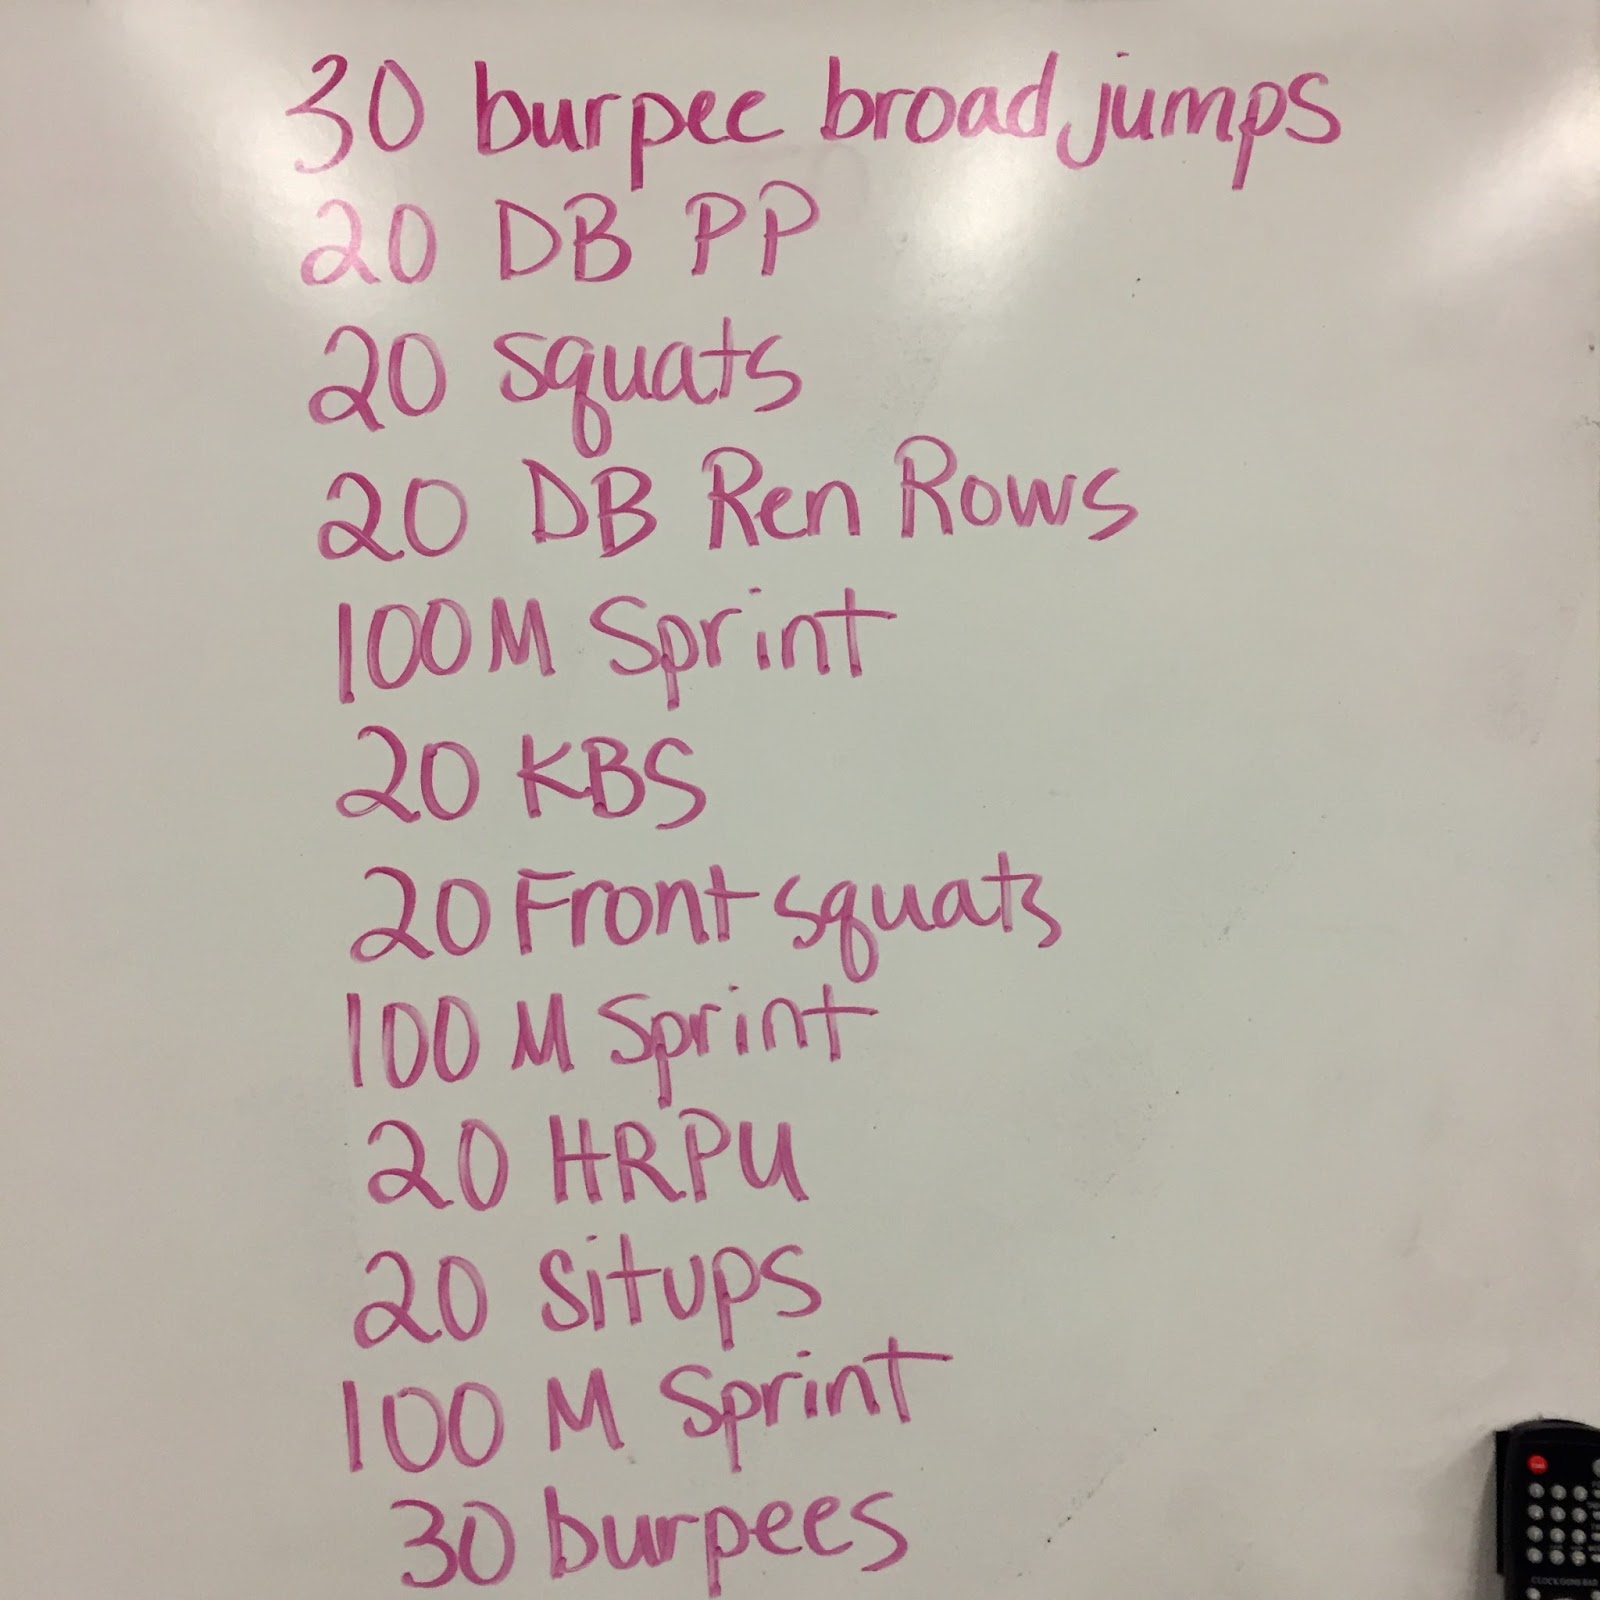 30 burpee broad jumps
20 DB PP
20 squats
20 DB Ren Rows
100M Sprint
20 KBS
20 Front squats
100 M Sprint
20 HRPU
20 situps
100 M Sprint
30 burpees